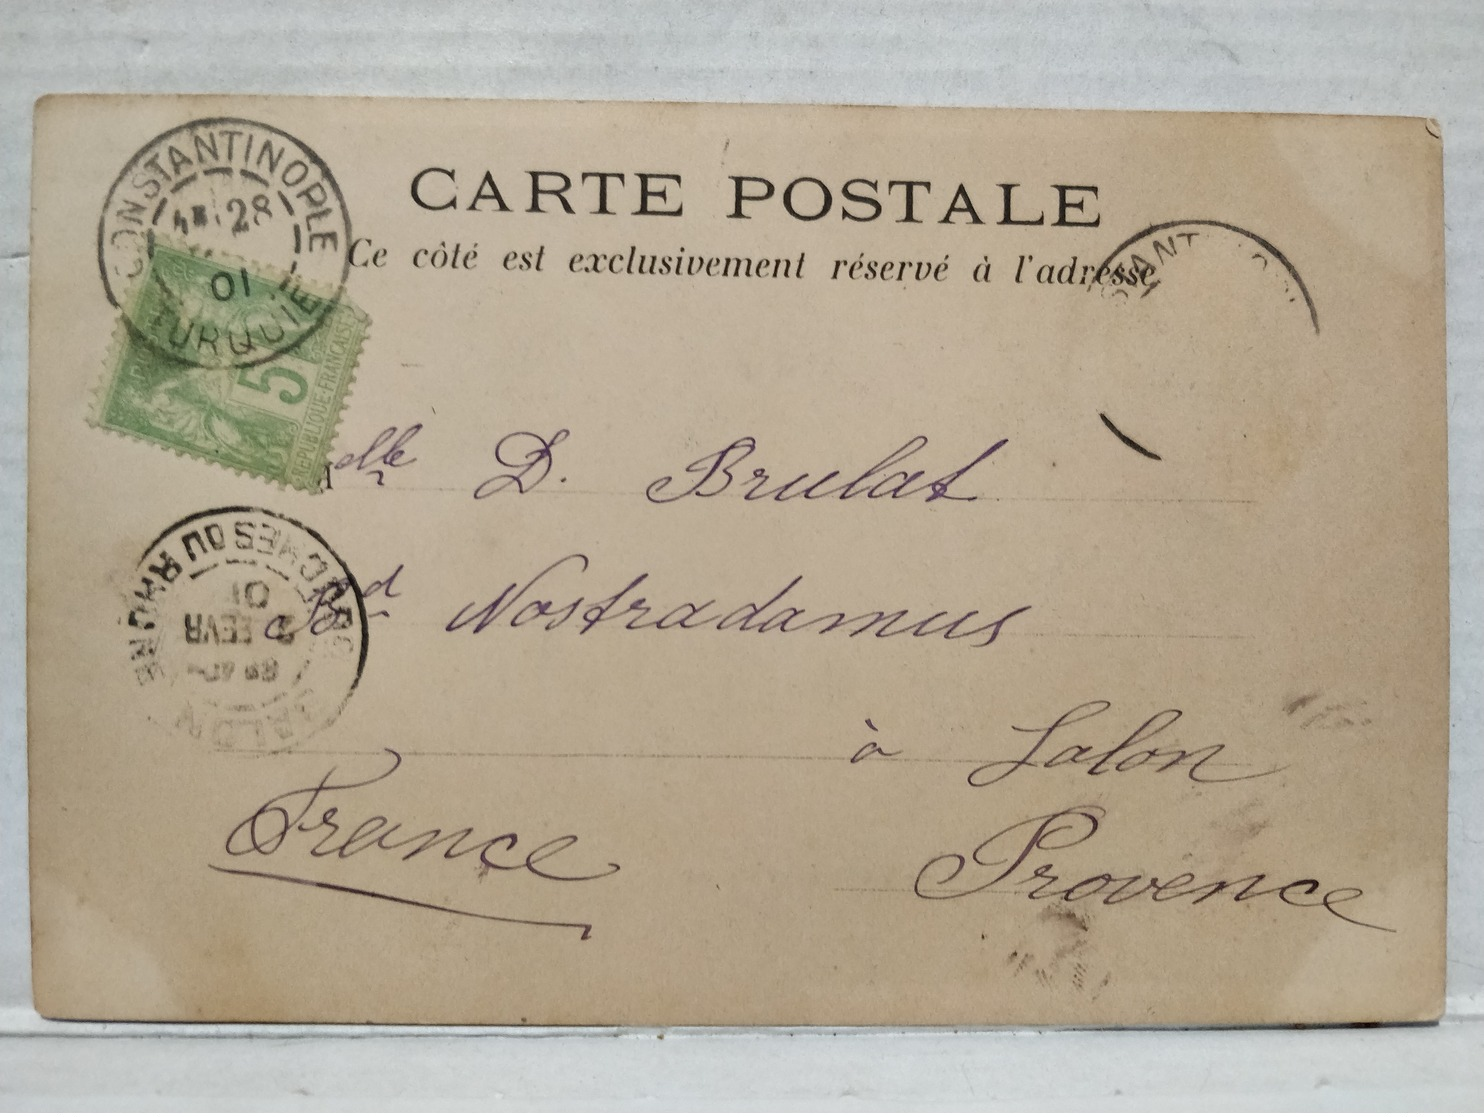 CARTE POSTALE
Ce côté est exclusivement réservé à l'adresse
CONSTANTINOPLE
28
01
TURQUIE
5
REPUBLIQUE FRANÇAISE
STANTINOPL
elle D. Brulat
Bd Nostradamus
à Salon
Provence
France
SALON
FEVR
01
BOUCHES DU RHONE